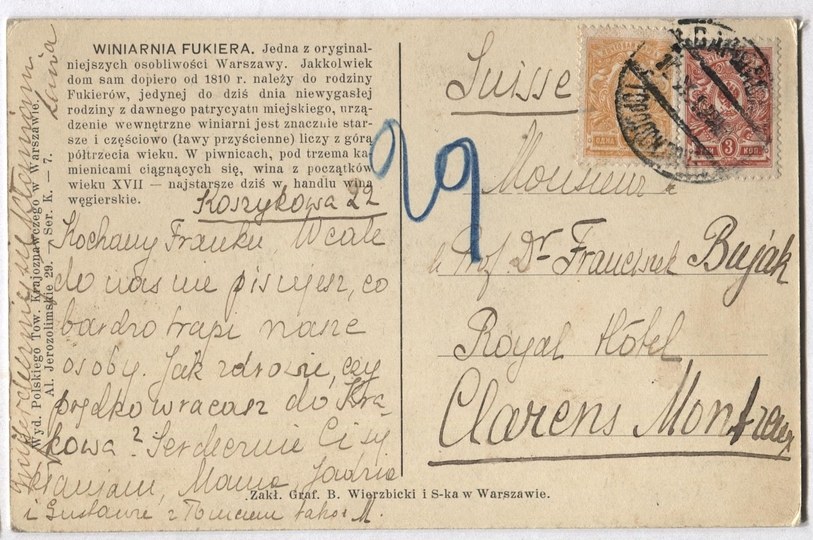 WINIARNIA FUKIERA. Jedna z oryginal-
niejszych osobliwości Warszawy. Jakkolwiek
dom sam dopiero od 1810 r. należy do rodziny
Fukierów, jedynej do dziś dnia niewygasłej
rodziny z dawnego patrycyatu miejskiego, urzą-
dzenie wewnętrzne winiarni jest znacznie star-
sze i częściowo (ławy przyścienne) liczy z górą
półtrzecia wieku. W piwnicach, pod trzema ka-
mienicami ciągnących się, wina z początków
wieku XVII — najstarsze dziś w handlu wina
węgierskie.
Koszykowa 22
Kochany Franku Wcale
do nas nie pisujesz, co
bardzo trapi nasze
osoby. Jak zdrowie, czy
prędko wracasz do Kra-
kowa? Serdecznie Ci się
kłaniam, Mama, Jadzia
i Gustawie z
M.
Wyd. Polskiego Tow. Krajoznawczego w Warszawie.
Al. Jerozolimskie 29. — Ser. K. — 7.
29
Suisse
Monsieur
Prof. Dr Franciszek Buják
Royal Hôtel
Clarens Montreux
ОДНА
3 КОП.
Zakł. Graf. B. Wierzbicki i S-ka w Warszawie.